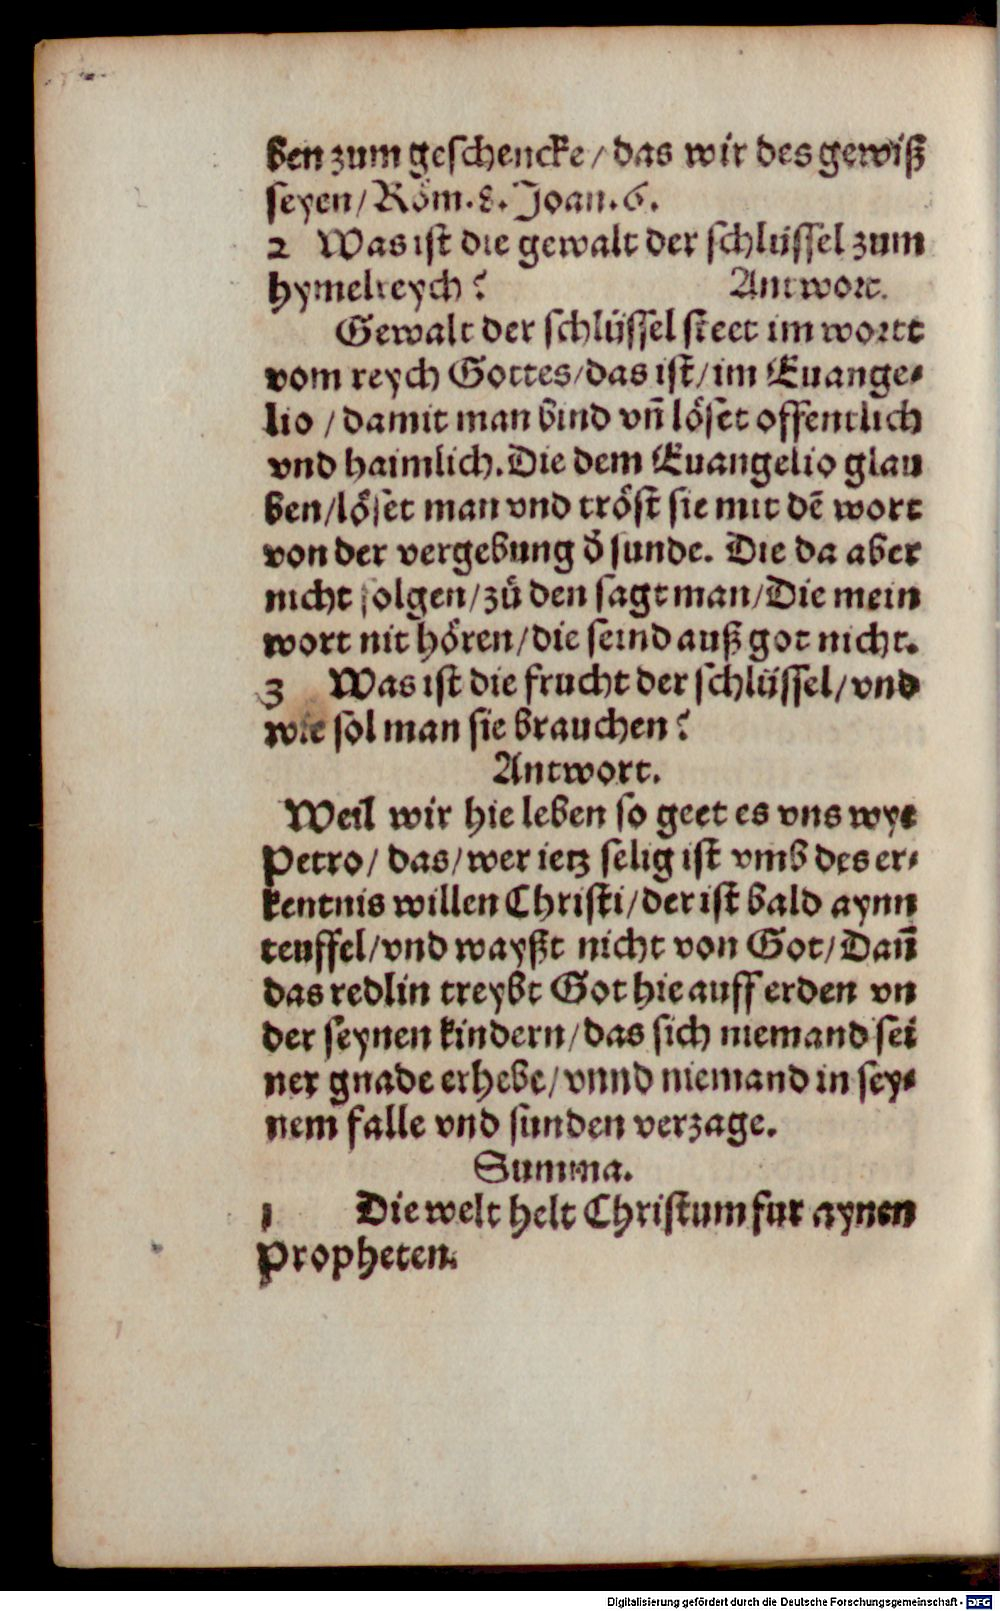 ben zum geschencke / das wir des gewiß
seyen / Röm. 8. Joan. 6.
2 Was ist die gewalt der schlüssel zum
hymelreych? Antwort.
Gewalt der schlüssel steet im wortt
vom reych Gottes / das ist / im Euange-
lio / damit man bind vn̄ löset offentlich
vnd haimlich. Die dem Euangelio glau
ben / löset man vnd tröst sie mit dē wort
von der vergebung d̄ sunde. Die da aber
nicht folgen / zů den sagt man / Die mein
wort nit hören / die seind auß got nicht.
3 Was ist die frucht der schlüssel / vnd
wie sol man sie brauchen?
Antwort.
Weil wir hie leben so geet es vns wye
Petro / das / wer ietz selig ist vmb des er-
kentnis willen Christi / der ist bald aynn
teuffel / vnd wayßt nicht von Got / Dan̄
das redlin treybt Got hie auff erden vn
der seynen kindern / das sich niemand sei
ner gnade erhebe / vnnd niemand in sey-
nem falle vnd sunden verzage.
Summa.
1 Die welt helt Christum fur aynen
Propheten.
Digitalisierung gefördert durch die Deutsche Forschungsgemeinschaft - DFG